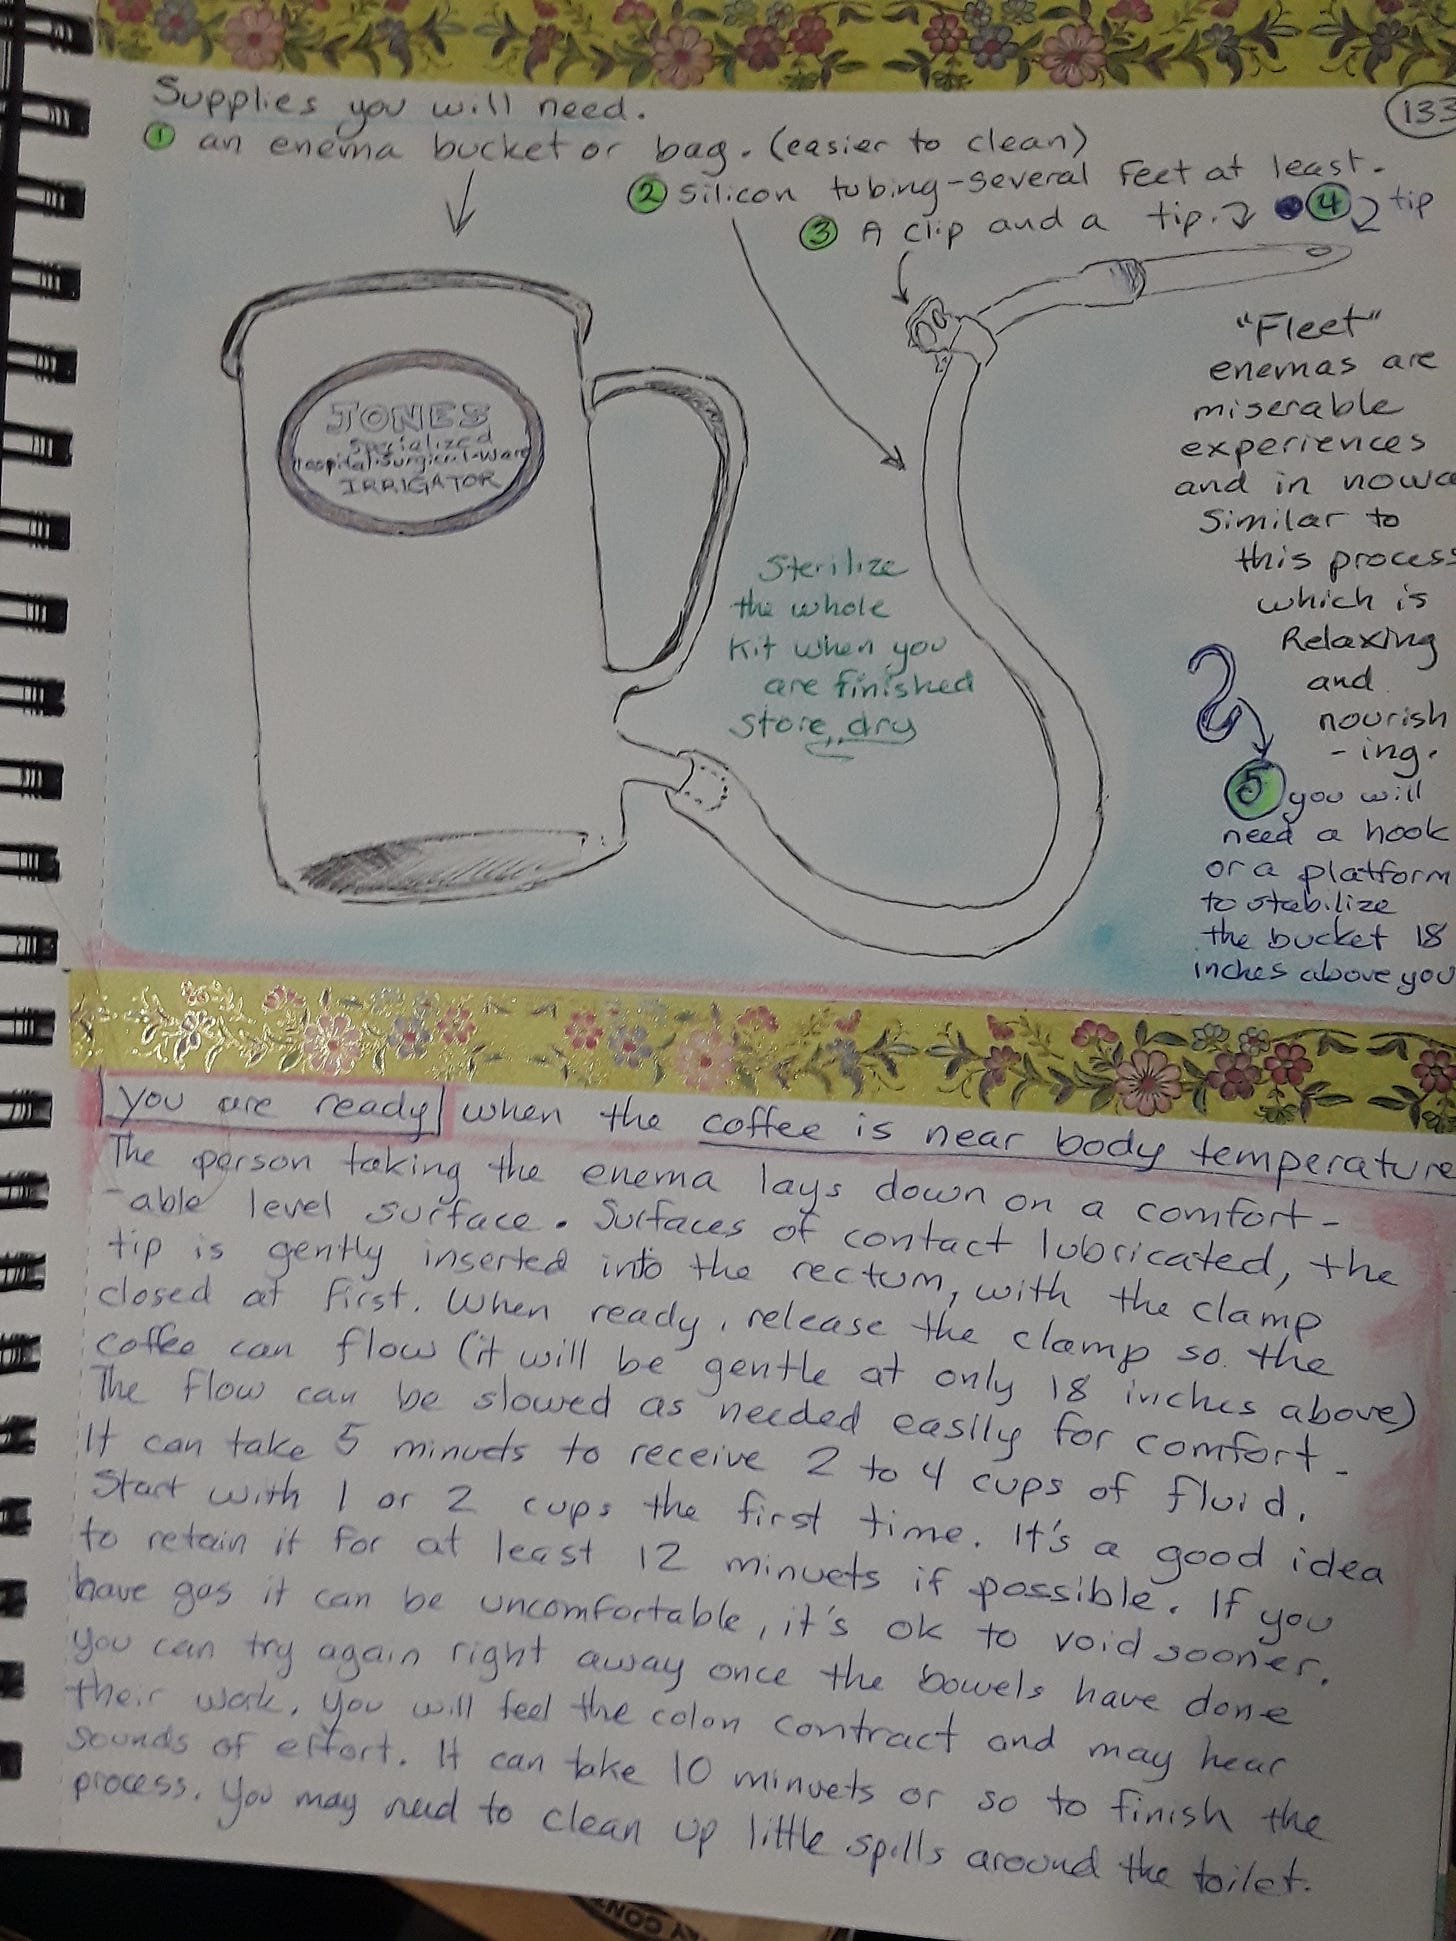 133
Supplies you will need.
① an enema bucket or bag. (easier to clean)
② Silicon tubing - several feet at least.
③ A clip and a tip.
④ tip
JONES
Specialized
Hospital-Surgical-Ware
IRRIGATOR
"Fleet"
enemas are
miserable
experiences
and in nowa
Similar to
this process
which is
Relaxing
and
nourish
-ing.
Sterilize
the whole
Kit when you
are finished
store dry
⑤ you will
need a hook
or a platform
to stabilize
the bucket 18
inches above you
you are ready when the coffee is near body temperature
The person taking the enema lays down on a comfort-
-able level surface. Surfaces of contact lubricated, the
tip is gently inserted into the rectum, with the clamp
closed at first. When ready, release the clamp so the
coffee can flow (it will be gentle at only 18 inches above)
The flow can be slowed as needed easily for comfort.
It can take 5 minuets to receive 2 to 4 cups of fluid.
Start with 1 or 2 cups the first time. It's a good idea
to retain it for at least 12 minuets if possible. If you
have gas it can be uncomfortable, it's ok to void sooner.
You can try again right away once the bowels have done
their work. You will feel the colon contract and may hear
sounds of effort. It can take 10 minuets or so to finish the
process. You may need to clean up little spills around the toilet.